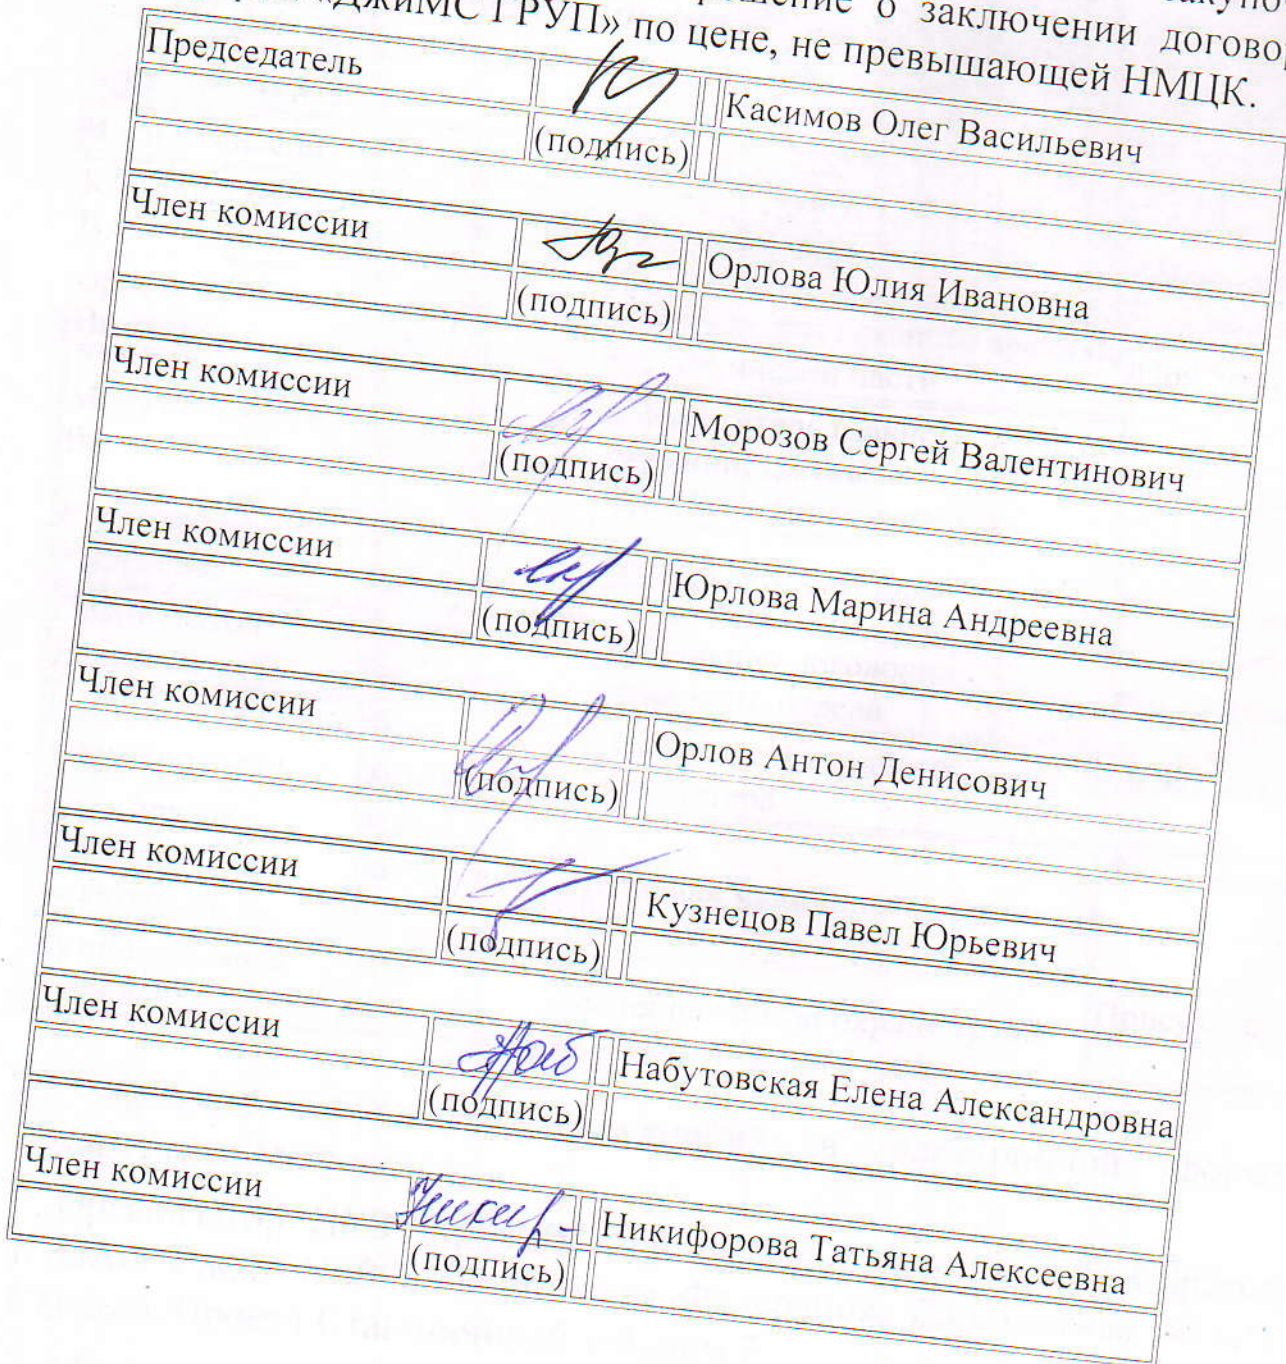 о заключении
«ДжиМС ГРУП» по цене, не превышающей НМЦК.
Председатель Касимов Олег Васильевич
(подпись)
Член комиссии Орлова Юлия Ивановна
(подпись)
Член комиссии Морозов Сергей Валентинович
(подпись)
Член комиссии Юрлова Марина Андреевна
(подпись)
Член комиссии Орлов Антон Денисович
(подпись)
Член комиссии Кузнецов Павел Юрьевич
(подпись)
Член комиссии Набутовская Елена Александровна
(подпись)
Член комиссии Никифорова Татьяна Алексеевна
(подпись)